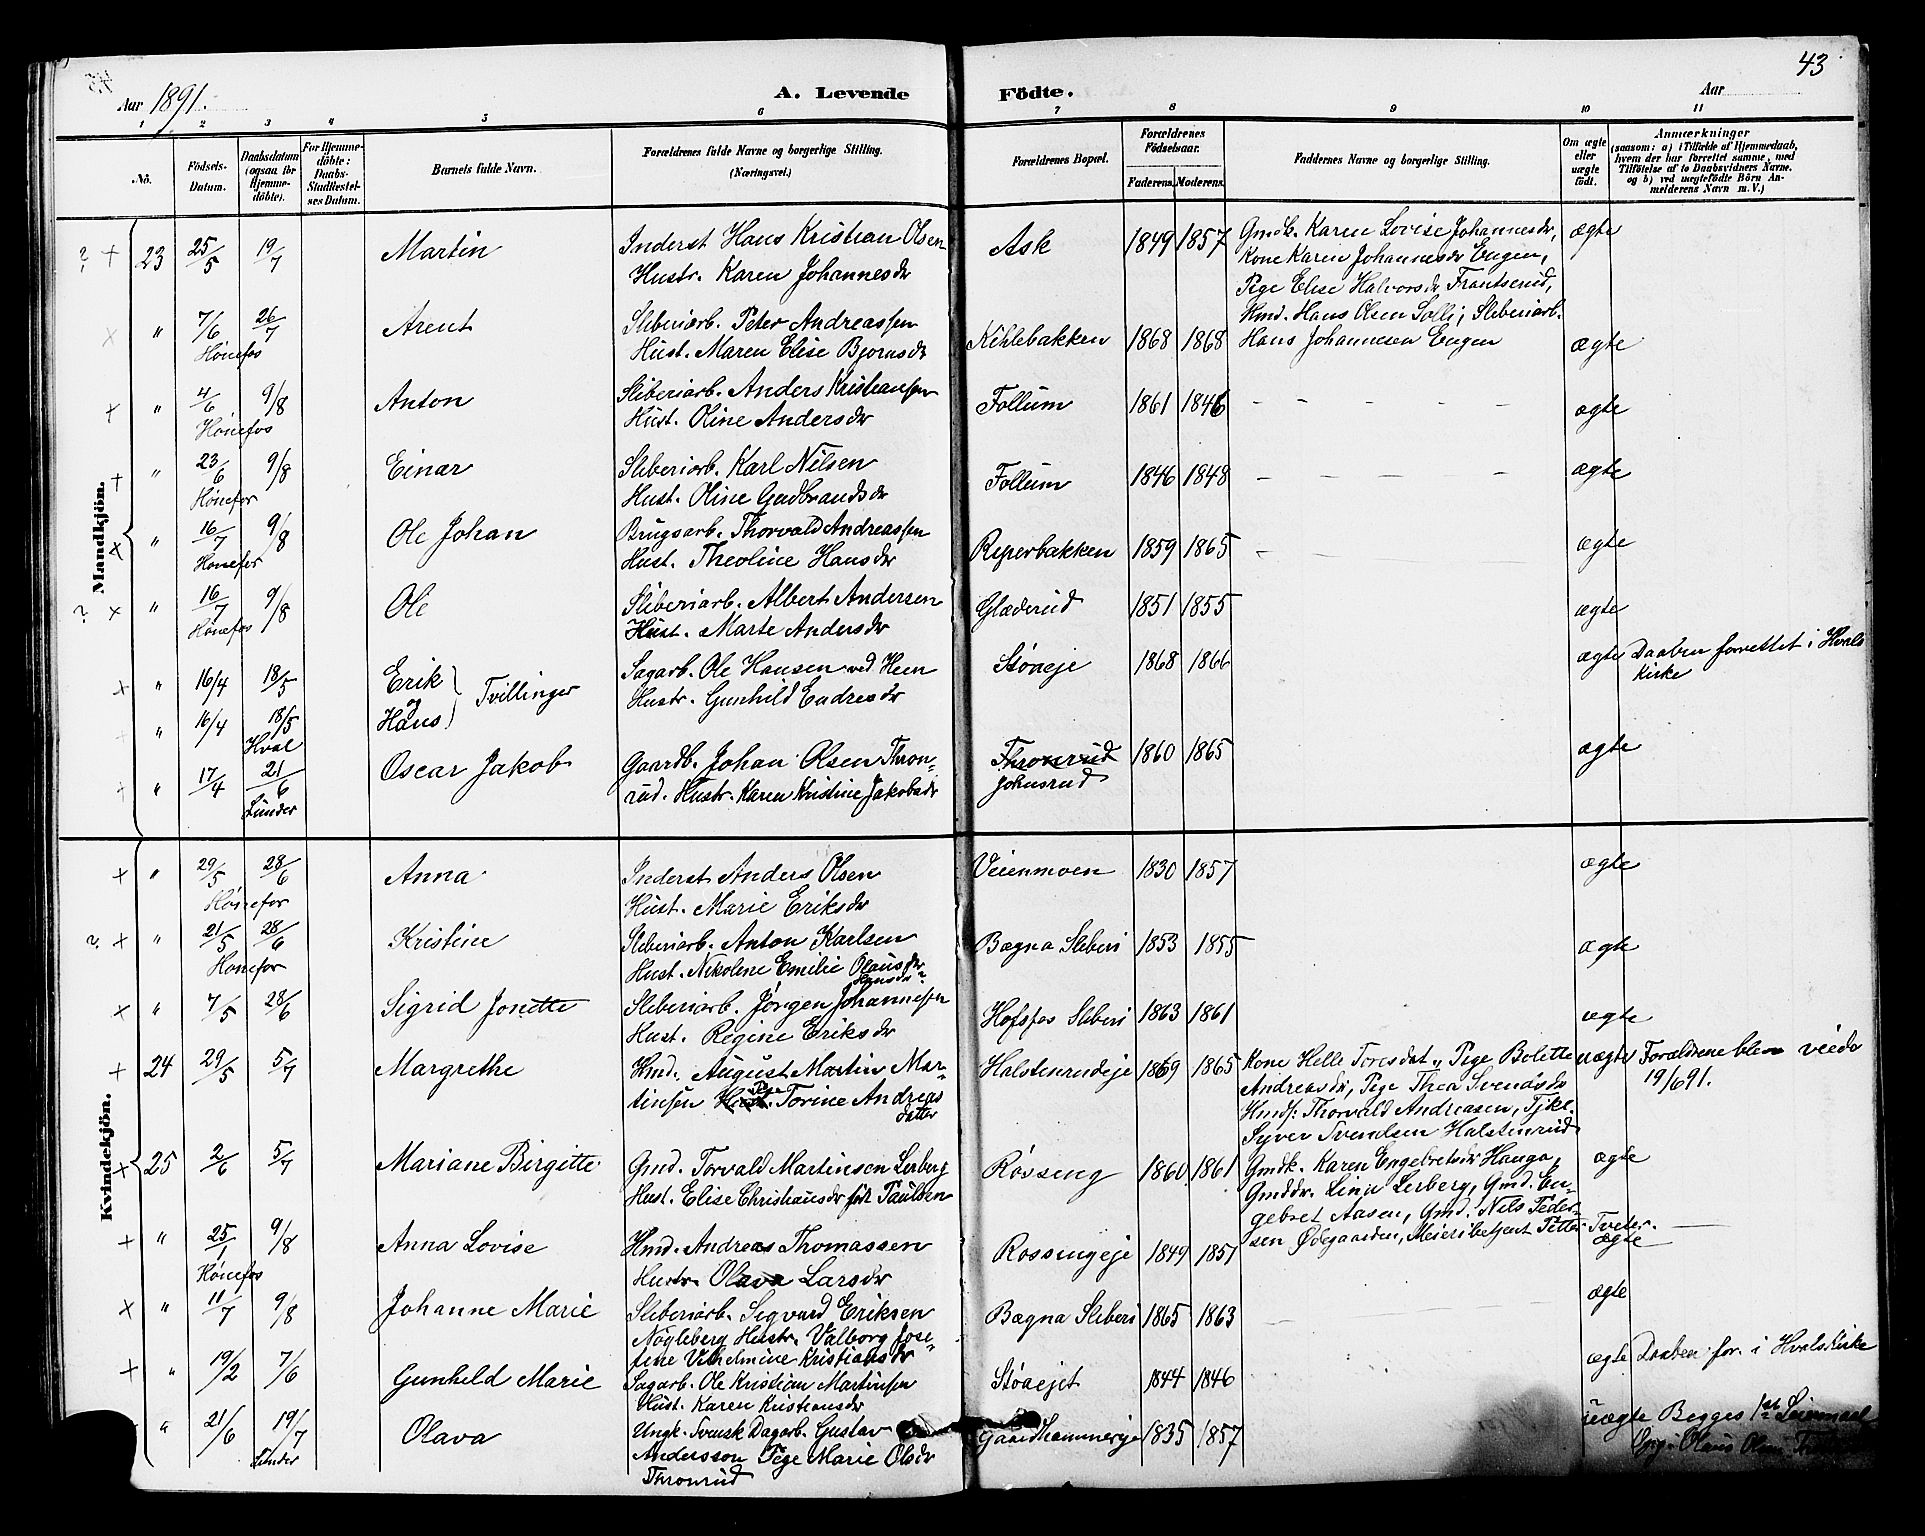 43
Aar 1891.
A. Levende Födte.
Aar
1 2 3 4 5 6 7 8 9 10 11
No.
Födsels-Datum.
Daabsdatum (ogsaa for Hjemme-döbte).
For Hjemme-döbte: Daabs-Stadfæstel-ses Datum.
Barnets fulde Navn.
Forældrenes fulde Navne og borgerlige Stilling.
(Næringsvei.)
Forældrenes Bopæl.
Forældrenes Födselsaar.
Faderens. Moderens.
Faddernes Navne og borgerlige Stilling.
Om ægte eller uægte födt.
Anmærkninger
(saasom: a) i Tilfælde af Hjemmedaab,
hvem der har forrettet samme, med
Tilföielse af to Daabsvidners Navne.
og b) ved uægtefödte Börn An-
melderens Navn m. V.)
Mandkjön.
? + 23 25/5 19/7 Martin Inderst Hans Kristian Olsen Ask 1849 1857 Gmdk. Karen Lovise Johannesdr, ægte
Hustr. Karen Johannesdr Kone Karen Johannesdr Eugen,
Pige Elise Halvorsdr Frantserud,
× " 7/6 26/7 Arent Sliberiarb. Peter Andreassen Hmd. Hans Olsen Solli, Sliberiarb.
Hönefos Hust. Maren Elise Bjornsdr Kihlebakken 1868 1868 Hans Johannesen Eugen ægte
+ " 4/6 9/8 Anton Sliberiarb. Anders Kristiansen Follum 1861 1846 - - - - - ægte
Hönefos Hust. Oline Andersdr
+ " 23/6 9/8 Einar Sliberiarb. Karl Nilsen Follum 1846 1848 - - - - ægte
Hönefos Hust. Oline Gudbrandsdr
× " 16/7 9/8 Ole Johan Brugsarb. Thorvald Andreassen Reperbakken 1859 1865 - - - - ægte
Honefos Hust. Theoline Hansdr
? × " 16/7 9/8 Ole Sliberiarb. Albert Andersen Glæderud 1851 1855 ægte
Hönefos Hust. Marte Andersdr
× " 16/4 18/5 Erik Sagarb. Ole Hansen ved Heen Stöaeje 1868 1866 ægte Daaben forrettet i Hvals
og } Tvillinger Hustr. Gunhild Endresdr Kirke
" 16/4 18/5 Hans
Hval
" 17/4 21/6 Oscar Jakob Gaardb. Johan Olsen Thron- Thronrud 1860 1865 ægte
Lunder rud. Hustr. Karen Kristine Jakobsdr Johnsrud
Kvindekjön.
× " 29/5 28/6 Anna Inderst Anders Olsen Veienmoen 1830 1857 ægte
Hönefos Hust. Marie Eriksdr
? × " 21/5 28/6 Kristine Sliberiarb. Anton Karlsen Bægna Sliberi 1853 1855 ægte
Honefos Hust. Nikoline Emilie Olausdr
Hansdr
× " 7/5 28/6 Sigrid Jonette Sliberiarb. Jörgen Johannessen Hofsfos Sliberi 1863 1861 ægte
Hust. Regine Eriksdr
+ 24 29/5 5/7 Margrethe Hmd. August Martin Mar- Halstenrudeje 1869 1865 Kone Helle Toresdat, Pige Bolette uægte Forældrene blev viede
tinsen Hust. Pige Torine Andreas Andreasdr, Pige Thea Svendsdr 19/6 91.
datter Hmd: Thorvald Andreasen, Tjkl.
Syver Svendsen Halstenrud
× 25 2/6 5/7 Mariane Birgitte Gmd. Torvald Martinsen Lerberg Rössing 1860 1861 Gmdk. Karen Engebretsdr Hauga, ægte
Hust. Elise Christiansdr föt Paulsen Gmddr. Lina Lerberg, Gmd. En-
gebret Aasen, Gmd. Nils Peder-
+ " 25/1 9/8 Anna Lovise Hmd. Andreas Thomassen Rossingeje 1849 1851 sen Ödegaarden, Meieribetjent Petter Tveter. -
Hönefos Hustr. Olava Larsdr ægte
× " 11/7 9/8 Johanne Marie Sliberiarb. Sigvard Eriksen Bægna Sliberi 1865 1863 - - - ægte
Nögleberg Hustr. Valborg Jose-
fine Vilhelmine Kristiansdr
+ " 19/2 7/6 Gunhild Marie Sagarb. Ole Kristian Martinsen Stöaejet 1844 1846 ægte Daaben for. i Hvals Kirke
Hust. Karen Kristiansdr
" 21/6 19/7 Olava Ungk. Svensk Dagarb. Gustav Gaardhammereje 1835 1857 uægte Begges 1ste Leiermaal
Lunder Andersson Pige Marie Olsdr Opg. Olaus Olsen
Thronrud